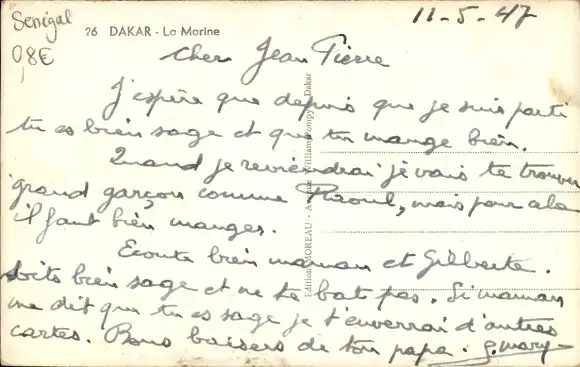 Sénégal
0,8€
26 DAKAR - La Marine
11-5-47
Cher Jean Pierre
J'espère que depuis que je suis parti
tu es bien sage et que tu mange bien.
Quand je reviendrai je vais te trouver
grand garçon comme Raoul, mais pour cela
il faut bien manger.
Ecoute bien maman et Gilberte.
sois bien sage et ne te bat pas. Si maman
me dit que tu es sage je t'enverrai d'autres
cartes. Bons baisers de ton papa. G. Mary
Editions MOREAU - Dakar